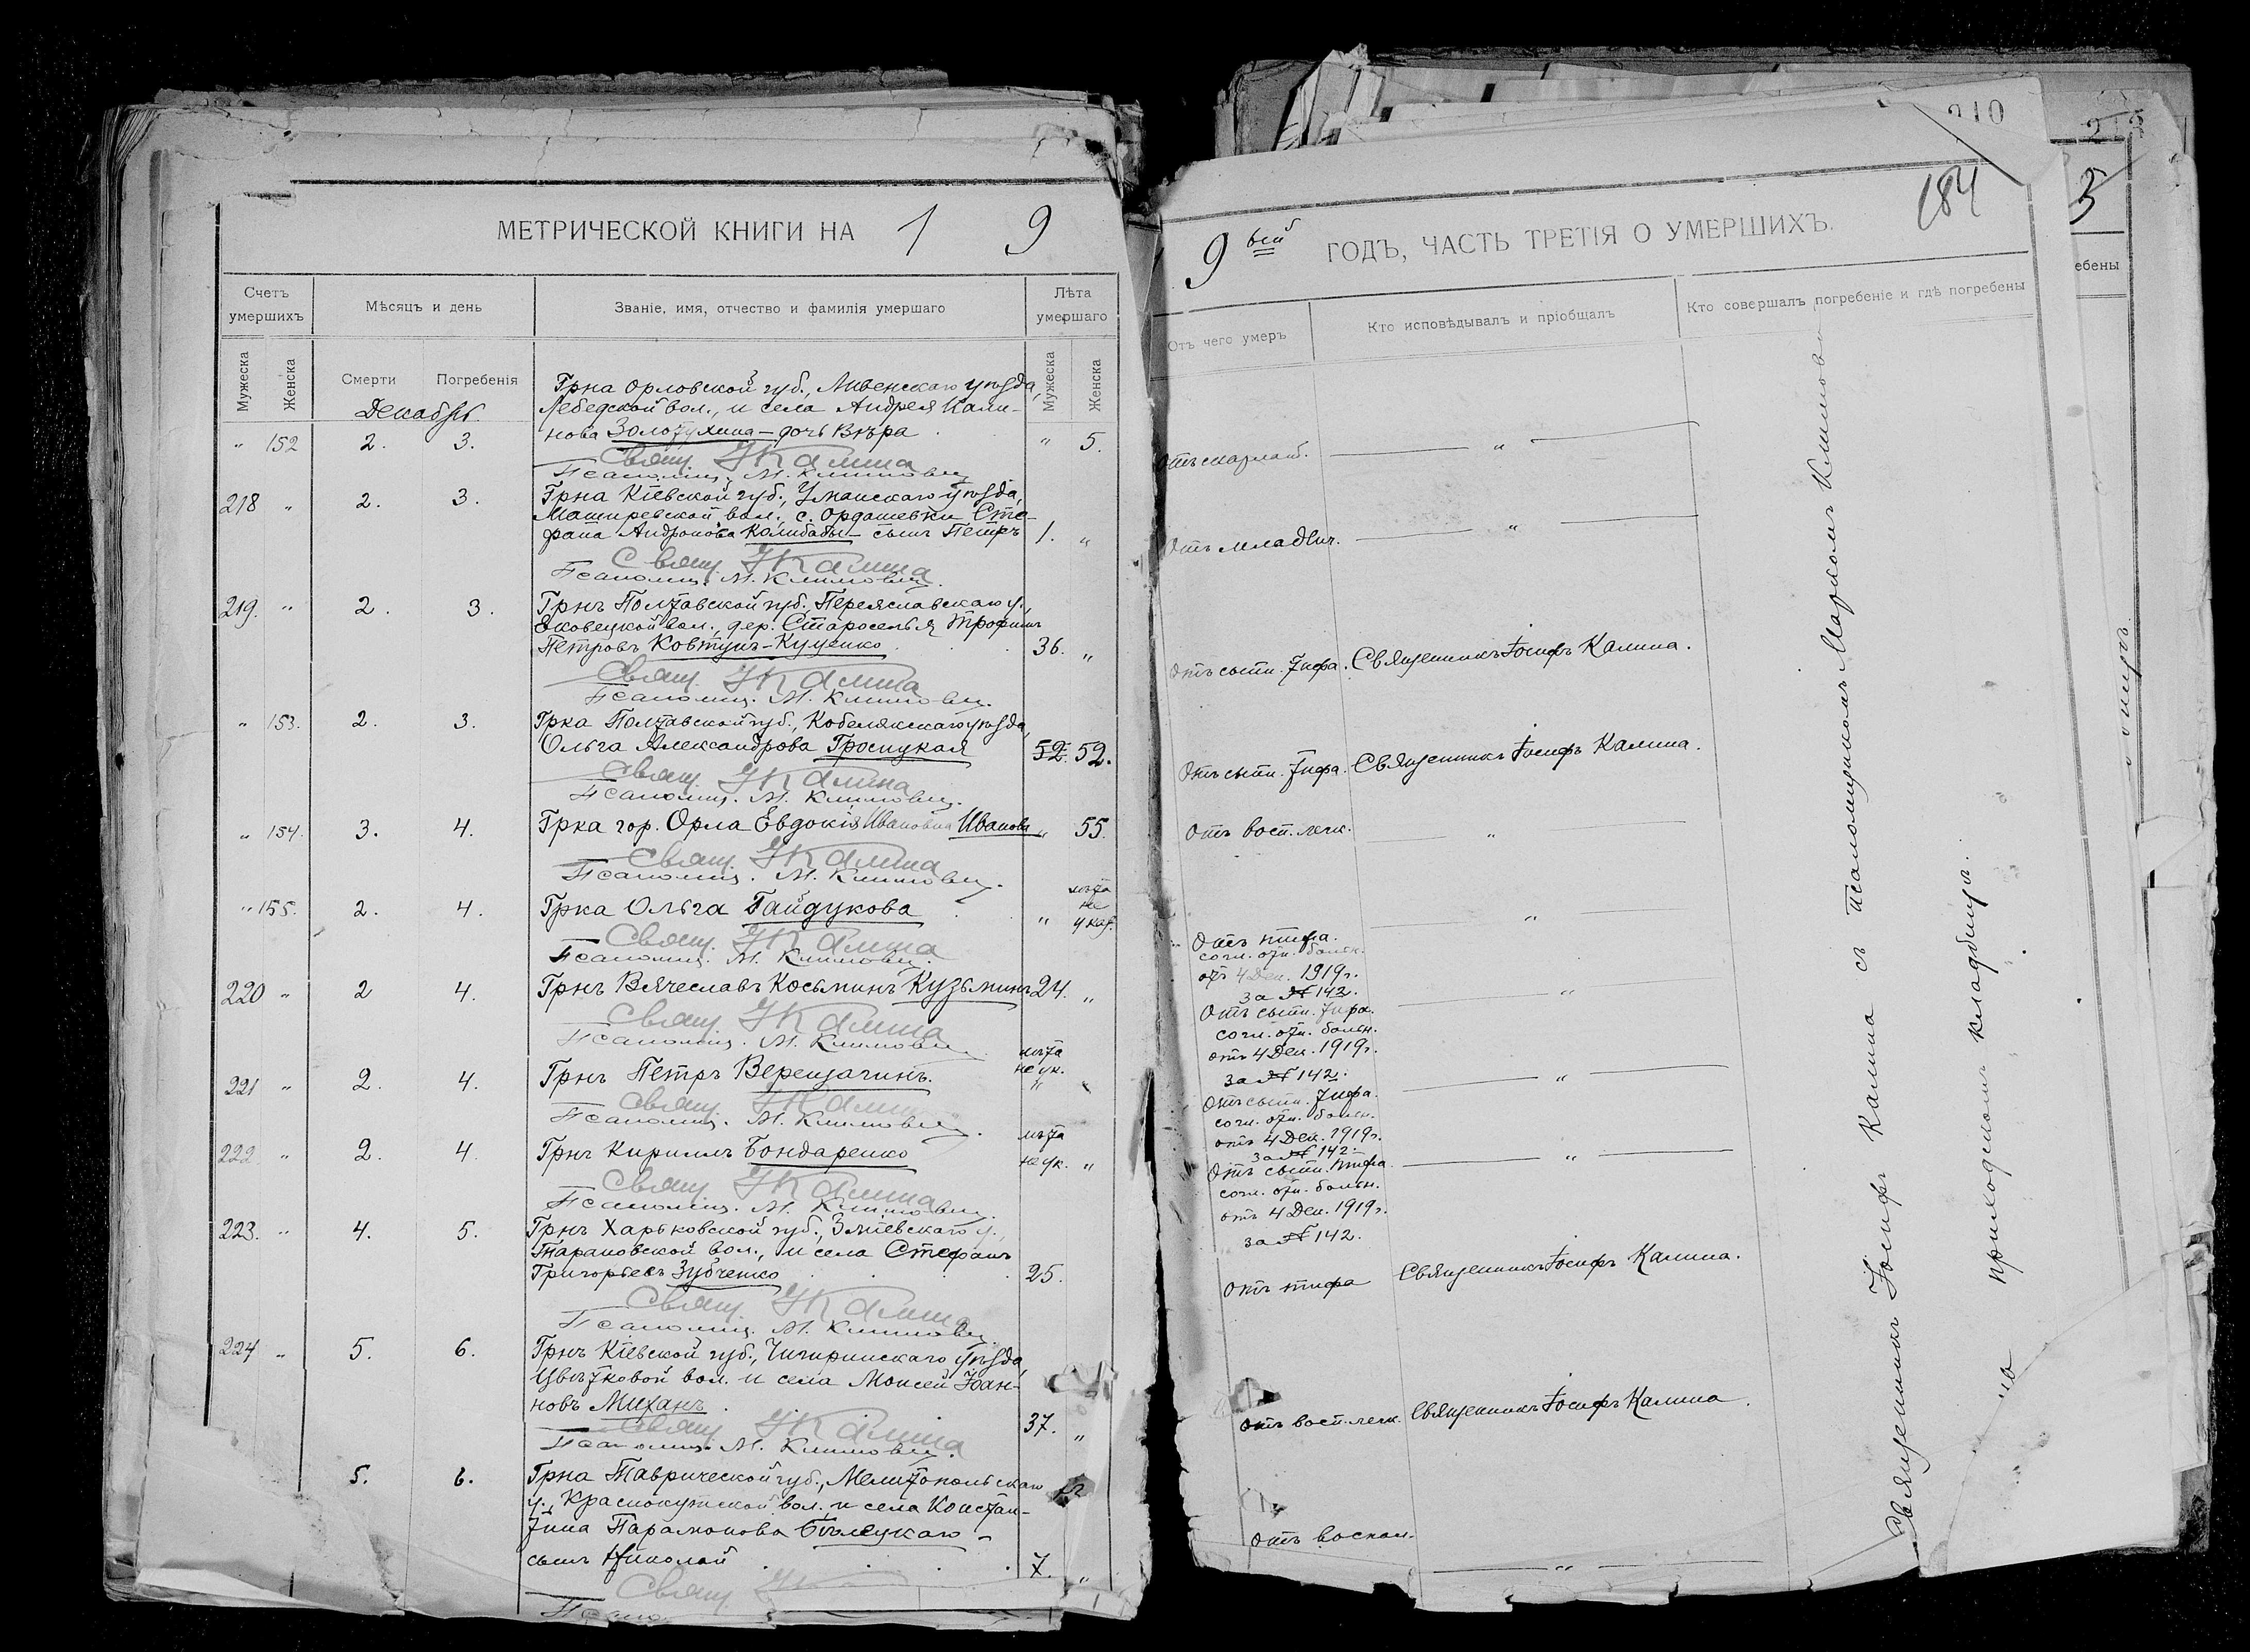 МЕТРИЧЕСКОЙ КНИГИ НА 1 9
Счетъ умершихъ
Мѣсяцъ и день
Званіе, имя, отчество и фамилія умершаго
Лѣта умершаго
Мужеска
Женска
Смерти
Погребенія
Мужеска
Женска
Декабрь.
Грна Орловской губ., Ливенскаго уѣзда,
вол., и села Андрея
" 152 2. 3. нова Золотухина – дочь Вѣра " 5.
Свящ. І Калина
Псаломщ. М. Климовъ
218 " 2. 3. Грна Кіевской губ., Уманскаго уѣзда,
вол., с. Ордашевки Сте-
фана Андронова Колибабы – сынъ Петръ 1. "
Свящ. І Калина
Псаломщ. М. Климовъ
219. " 2. 3. Грнъ Полтавской губ., Переяславскаго у.,
вол., дер. Староселья Трофимъ
Петровъ Ковтунъ-Куценко 36. "
Свящ. І Калина
Псаломщ. М. Климовъ
" 153. 2. 3. Грка Полтавской губ., Кобелякскаго уѣзда,
Ольга Александрова 52. 52.
Свящ. І Калина
Псаломщ. М. Климовъ
" 154. 3. 4. Грка гор. Орла Евдокія Ивановна Иванова " 55.
Свящ. І Калина
Псаломщ. М. Климовъ
лѣта
не
" 155. 2. 4. Грка Ольга Гайдукова " указ.
Свящ. І Калина
Псаломщ. М. Климовъ
220 " 2 4. Грнъ Вячеславъ Косьминъ Кузьминъ 24. "
Свящ. І Калина
Псаломщ. М. Климовъ
лѣта
не ук.
221 " 2. 4. Грнъ Петръ Верещагинъ. "
Свящ. І Калина
Псаломщ. М. Климовъ
лѣта
222 " 2. 4. Грнъ Кириллъ Бондаренко не ук. "
Свящ. І Калина
Псаломщ. М. Климовъ
223. " 4. 5. Грнъ Харьковской губ., Зміевскаго у.,
Тарановской вол., и села Стефанъ
Григорьевъ Зубченко 25.
Свящ. І Калина
Псаломщ. М. Климовъ
224 " 5. 6. Грнъ Кіевской губ., Чигиринскаго уѣзда,
Цвѣтковой вол. и села Моисей Іоан-
новъ Миханъ 37. "
Свящ. І Калина
Псаломщ. М. Климовъ
5. 6. Грна Таврической губ., Мелитопольскаго
у., Краснокутской вол. и села Констан-
тина Парамонова Бѣлецкаго –
сынъ Николай 7. "
Свящ. І
Псало
210
184
9 ый ГОДЪ, ЧАСТЬ ТРЕТІЯ О УМЕРШИХЪ.
Отъ чего умеръ
Кто исповѣдывалъ и пріобщалъ
Кто совершалъ погребеніе и гдѣ погребены
Отъ скарлат. "
Отъ младенч. "
Отъ сыпн. тифа. Священникъ Іосифъ Калина.
Отъ сыпн. тифа. Священникъ Іосифъ Калина.
Отъ восп. легк. "
Отъ тифа. "
согл. отн. больн.
отъ 4 Дек. 1919 г.
за № 142.
Отъ сыпн. тифа. "
согл. отн. больн.
отъ 4 Дек. 1919 г.
за № 142.
Отъ сыпн. тифа. "
согл. отн. больн.
отъ 4 Дек. 1919 г.
за № 142.
Отъ сыпн. тифа "
согл. отн. больн.
отъ 4 Дек. 1919 г.
за № 142.
Отъ тифа Священникъ Іосифъ Калина.
Отъ восп. легк. Священникъ Іосифъ Калина.
Отъ воспал. "
Священникъ Іосифъ Калина съ псаломщикомъ Маркомъ Климовымъ
на приходскомъ кладбищѣ.
213
3
ебены